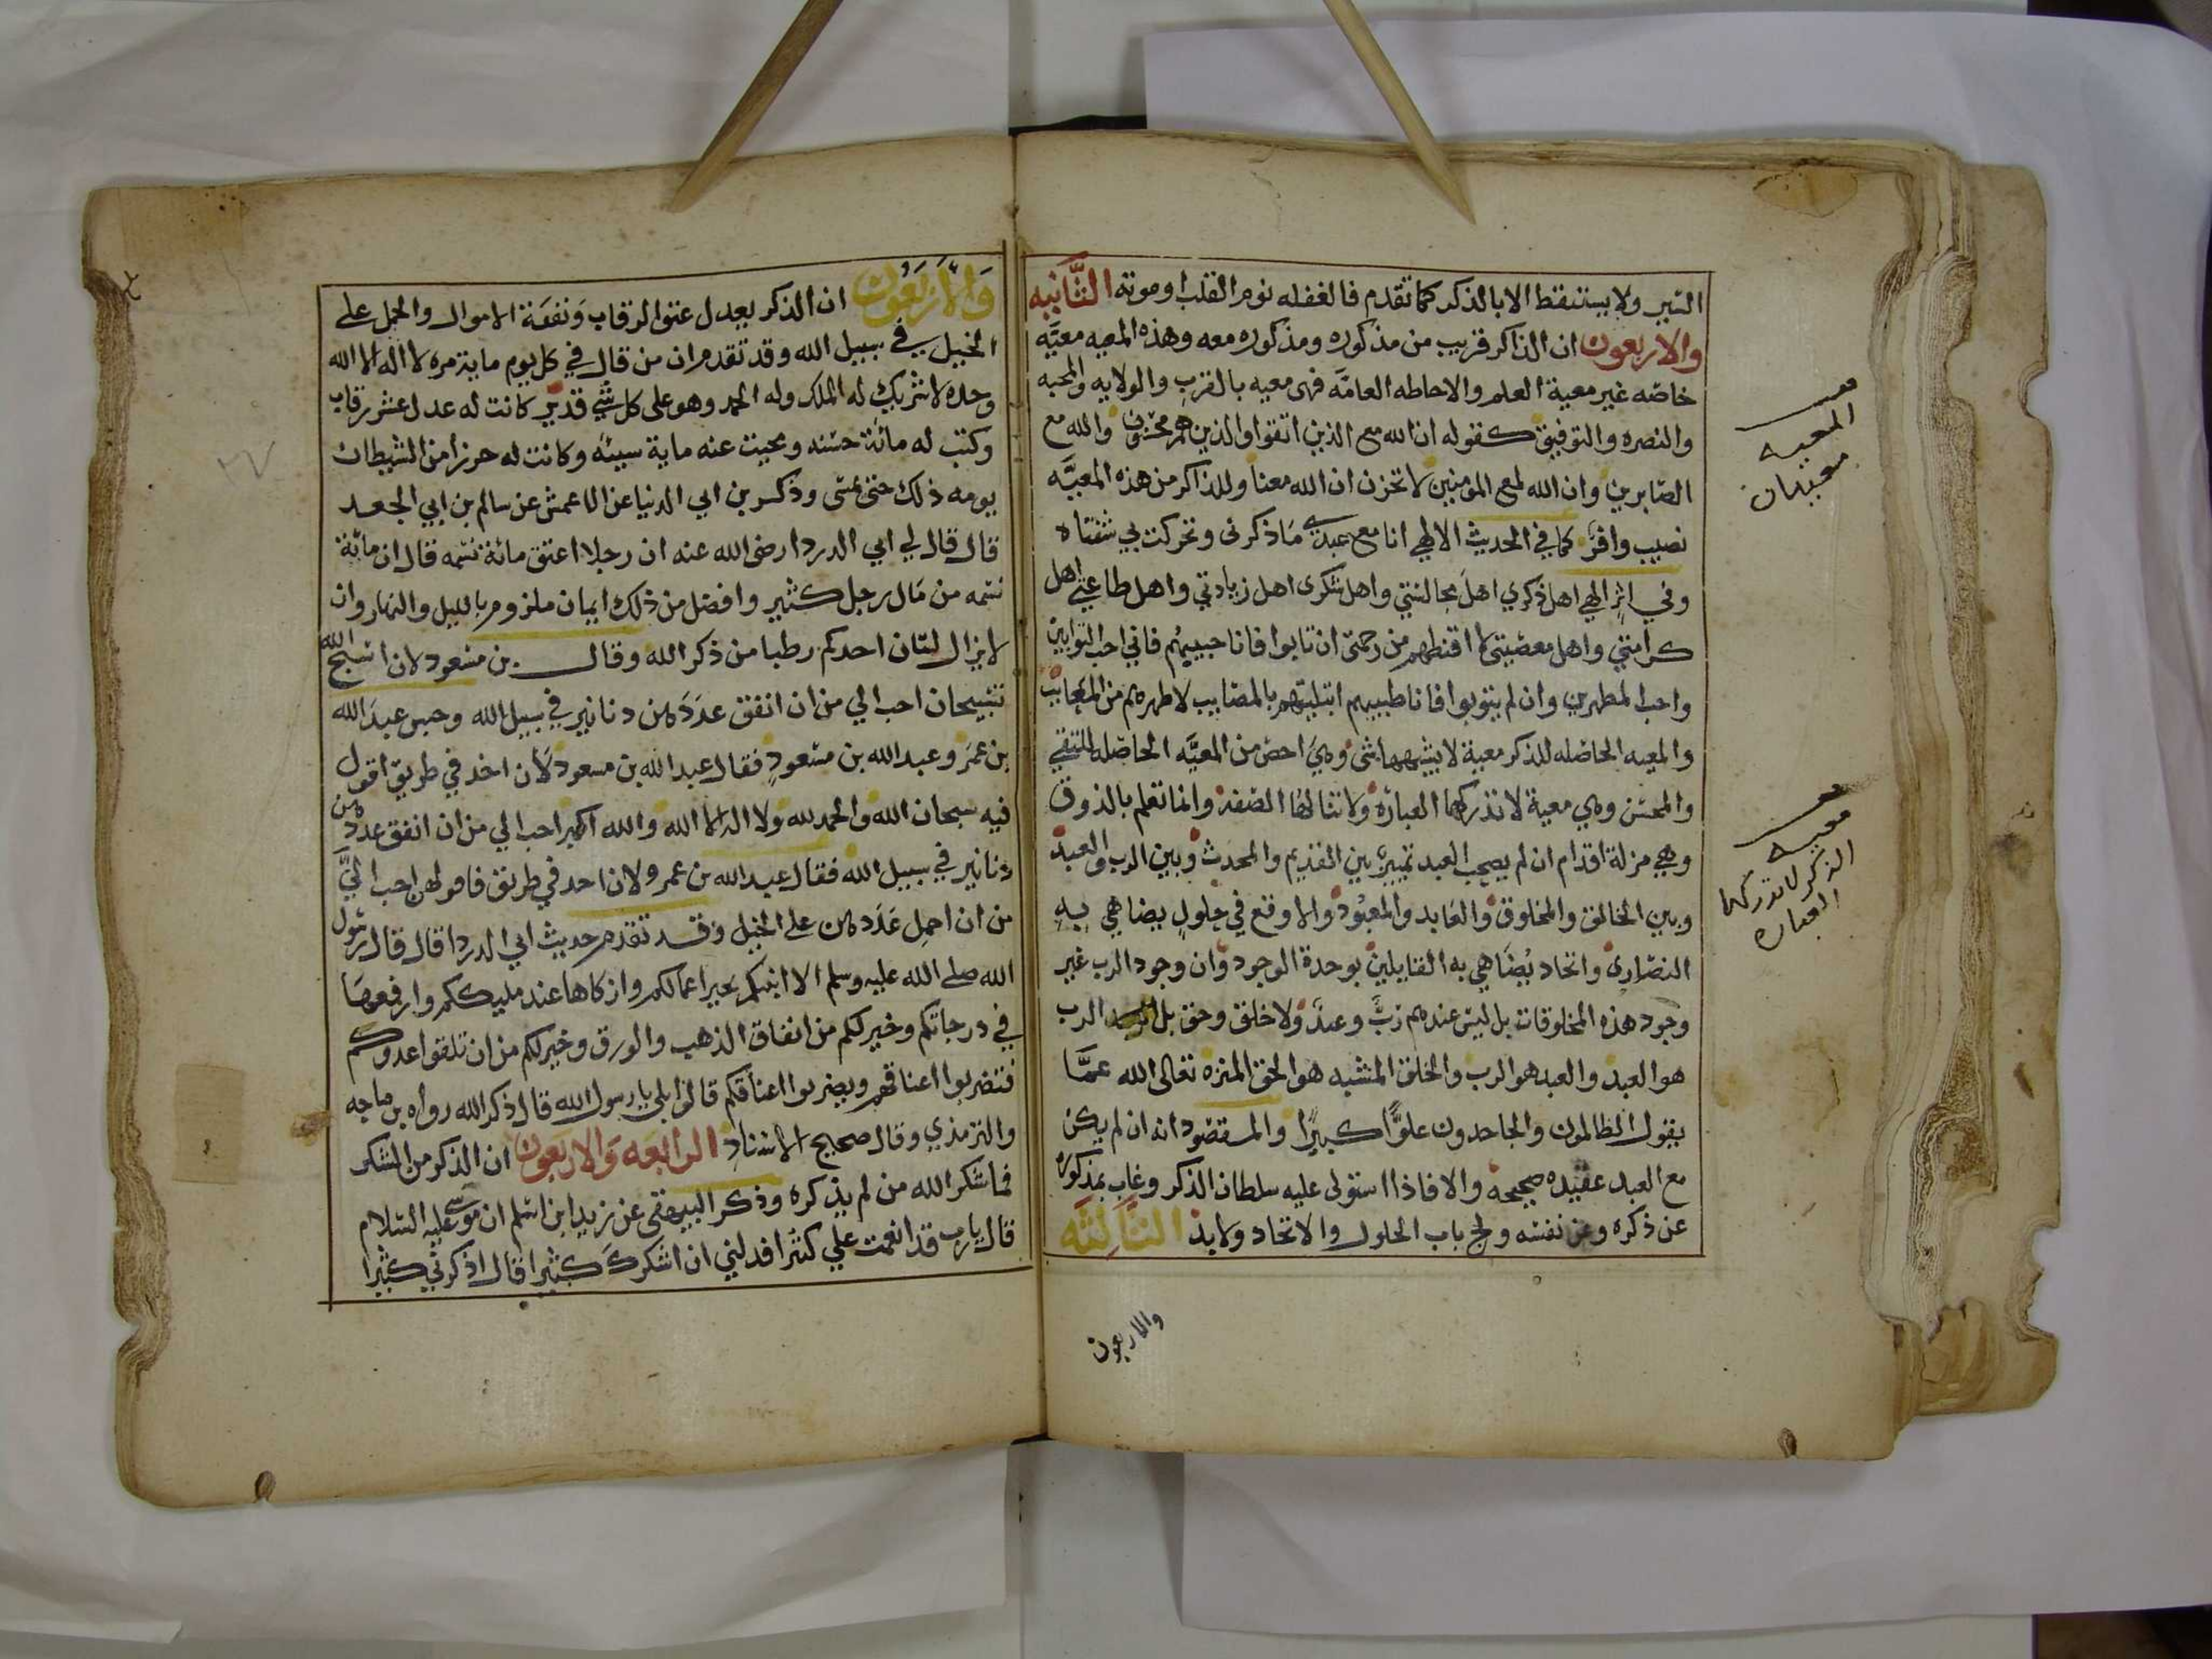 السير ولا يستنقظ الا بالذكر كما تقدم فالغفله نوم القلب او موته الثَّانيه
والاربعون ان الذاكر قريب من مذكوره ومذكوره معه وهذه المعيه معيَّه
خاصّه غير معية العلم والاحاطه العامَّه فهى معيه بالقرب والولايه والمحبه
والنصره والتوفيق كقوله ان الله مع الذين اتقوا والذين هم محسنون والله مع
الصّابرين وان الله لمع المومنين لا تحزن ان الله معنا وللذاكر من هذه المعيَّه
نصيب وافرٌ كما في الحديث الالهي انا مع عبدى ما ذكرنى وتحركت بي شفتاه
وفي اثرٍ الهي اهل ذكري اهل مجالستي واهل شكرى اهل زيادتي واهل طاعتي اهل
كرامتي واهل معصيتى لا اقنطهم من رحمتى ان تابوا فانا حبيبهُم فاني احب التوابين
واحب المطهرين وان لم يتوبوا فانا طبيبهم ابتليتهم بالمصايب لاطهرهم من المعايب
والمعيه الحاصله للذكر معية لا يشبهها شى وهي اخصّ من المعيَّه الحاصله للمتقي
والمحسن وهي معية لا تدركها العبارة ولا تنالها الصّفة وانما تعلم بالذوق
وهي مزلة اقدام ان لم يصحب العبد تمييزٌ بين القديم والمحدث وبين الرب والعبد
وبين الخالق والمخلوق والعابد والمعبُود والا وقع في حلولٍ يضاهي به
النصّارى واتحاد يُضاهي به القايلين بوحدة الوجود وان وجود الرب غير
وجود هذه المخلوقات بل ليس عندهم ربٌّ وعبدٌ ولا خلق وحق بل الرب
هو العبد والعبد هو الرب والخلق المشبه هو الحق المنزه تعالى الله عمَّا
يقول الظالمون والجاحدون علوًّا كبيرًا والمقصود انه ان لم يكن
مع العبد عقيده صحيحه والا فاذا استولى عليه سلطان الذكر وغاب بمذكوره
عن ذكره وعن نفسه ولج باب الحلول والاتحاد ولا بد الثَّالثَه
والاربعون
المعيه
معيتان
معيه
الذكر لا تدركها
العباره
وَالاَربَعُون ان الذكر يعدل عتق الرقاب ونفقة الاموال والحمل على
الخيل في سبيل الله وقد تقدم ان من قال في كل يوم ماية مره لا اله الا الله
وحده لا شريك له الملك وله الحمد وهو على كل شي قدير كانت له عدل عشر رقاب
وكتب له مائة حسنه ومحيت عنه ماية سيئه وكانت له حرزاً من الشيطان
يومه ذلك حتى يمسى وذكر بن ابي الدنيا عن الاعمش عن سالم بن ابي الجعد
قال قال لي ابي الدردا رضى الله عنه ان رجلا اعتق مائة نسمه قال ان مائة
نسمه من مال رجل كثير وافضل من ذلك ايمان ملزوم بالليل والنهار وان
لا يزال لسان احدكم رطبا من ذكر الله وقال بن مسعود لان اسبح الله
تسبيحات احب الي من ان انفق عدَدَهن دنانير في سبيل الله وجلس عبد الله
بن عمَرو وعبد الله بن مسعود فقال عبد الله بن مسعود لان اخذ في طريق اقول
فيه سبحان الله والحمد لله ولا اله الا الله والله اكبر احب الي من ان انفق عددهن
دنانير في سبيل الله فقال عبد الله بن عمر ولان اخذ في طريق فاقولهن احب الىَّ
من ان احمل عَدَدهن على الخيل وقد تقدم حديث ابي الدردا قال قال رسول
الله صلى الله عليه وسلم الا انبئكم بخير اعمالكم وازكاها عند مليككم وارفعها
في درجاتكم وخير لكم من انفاق الذهب والورق وخير لكم من ان تلقوا عدوكم
فتضربوا اعناقهم ويضربوا اعناقكم قالوا بلى يا رسول الله قال ذكر الله رواه بن ماجه
والترمذي وقال صحيح الاسناد الرابعَه والاربعون ان الذكر من الشكر
فما شكر الله من لم يذكره وذكر البيهقى عن زيد ابن اسلم ان موسى عليه السلام
قال يارب قد انعمت علي كثيرا فدلني ان اشكرك كثيرا قال اذكرني كثيرا